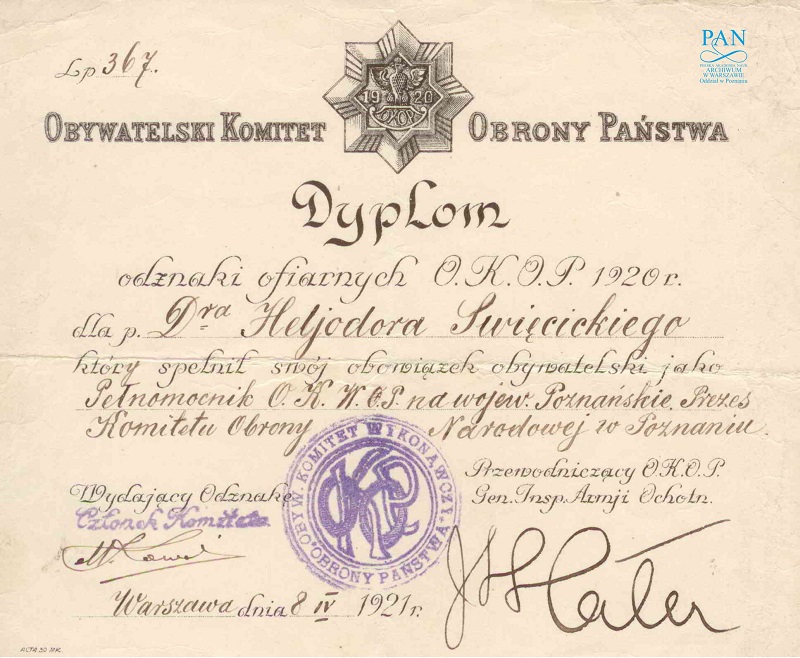 Lp 367.
PAN
POLSKA AKADEMIA NAUK
ARCHIWUM
W WARSZAWIE
Oddział w Poznaniu
1920
OKOP
OBYWATELSKI KOMITET OBRONY PAŃSTWA
Dyplom
odznaki ofiarnych O.K.O.P. 1920 r.
dla p. Dra Heljodora Święcickiego
który spełnił swój obowiązek obywatelski jako
Pełnomocnik O. K. W. O. P. na wojew. Poznańskie, Prezes
Komitetu Obrony Narodowej w Poznaniu.
Przewodniczący O.K.O.P.
Wydający Odznakę Gen. Insp. Armji Ochotn.
Członek Komitetu
OBYW. KOMITET WYKONAWCZY
OBRONY PAŃSTWA
J Haller
Warszawa dnia 8 IV 1921 r.